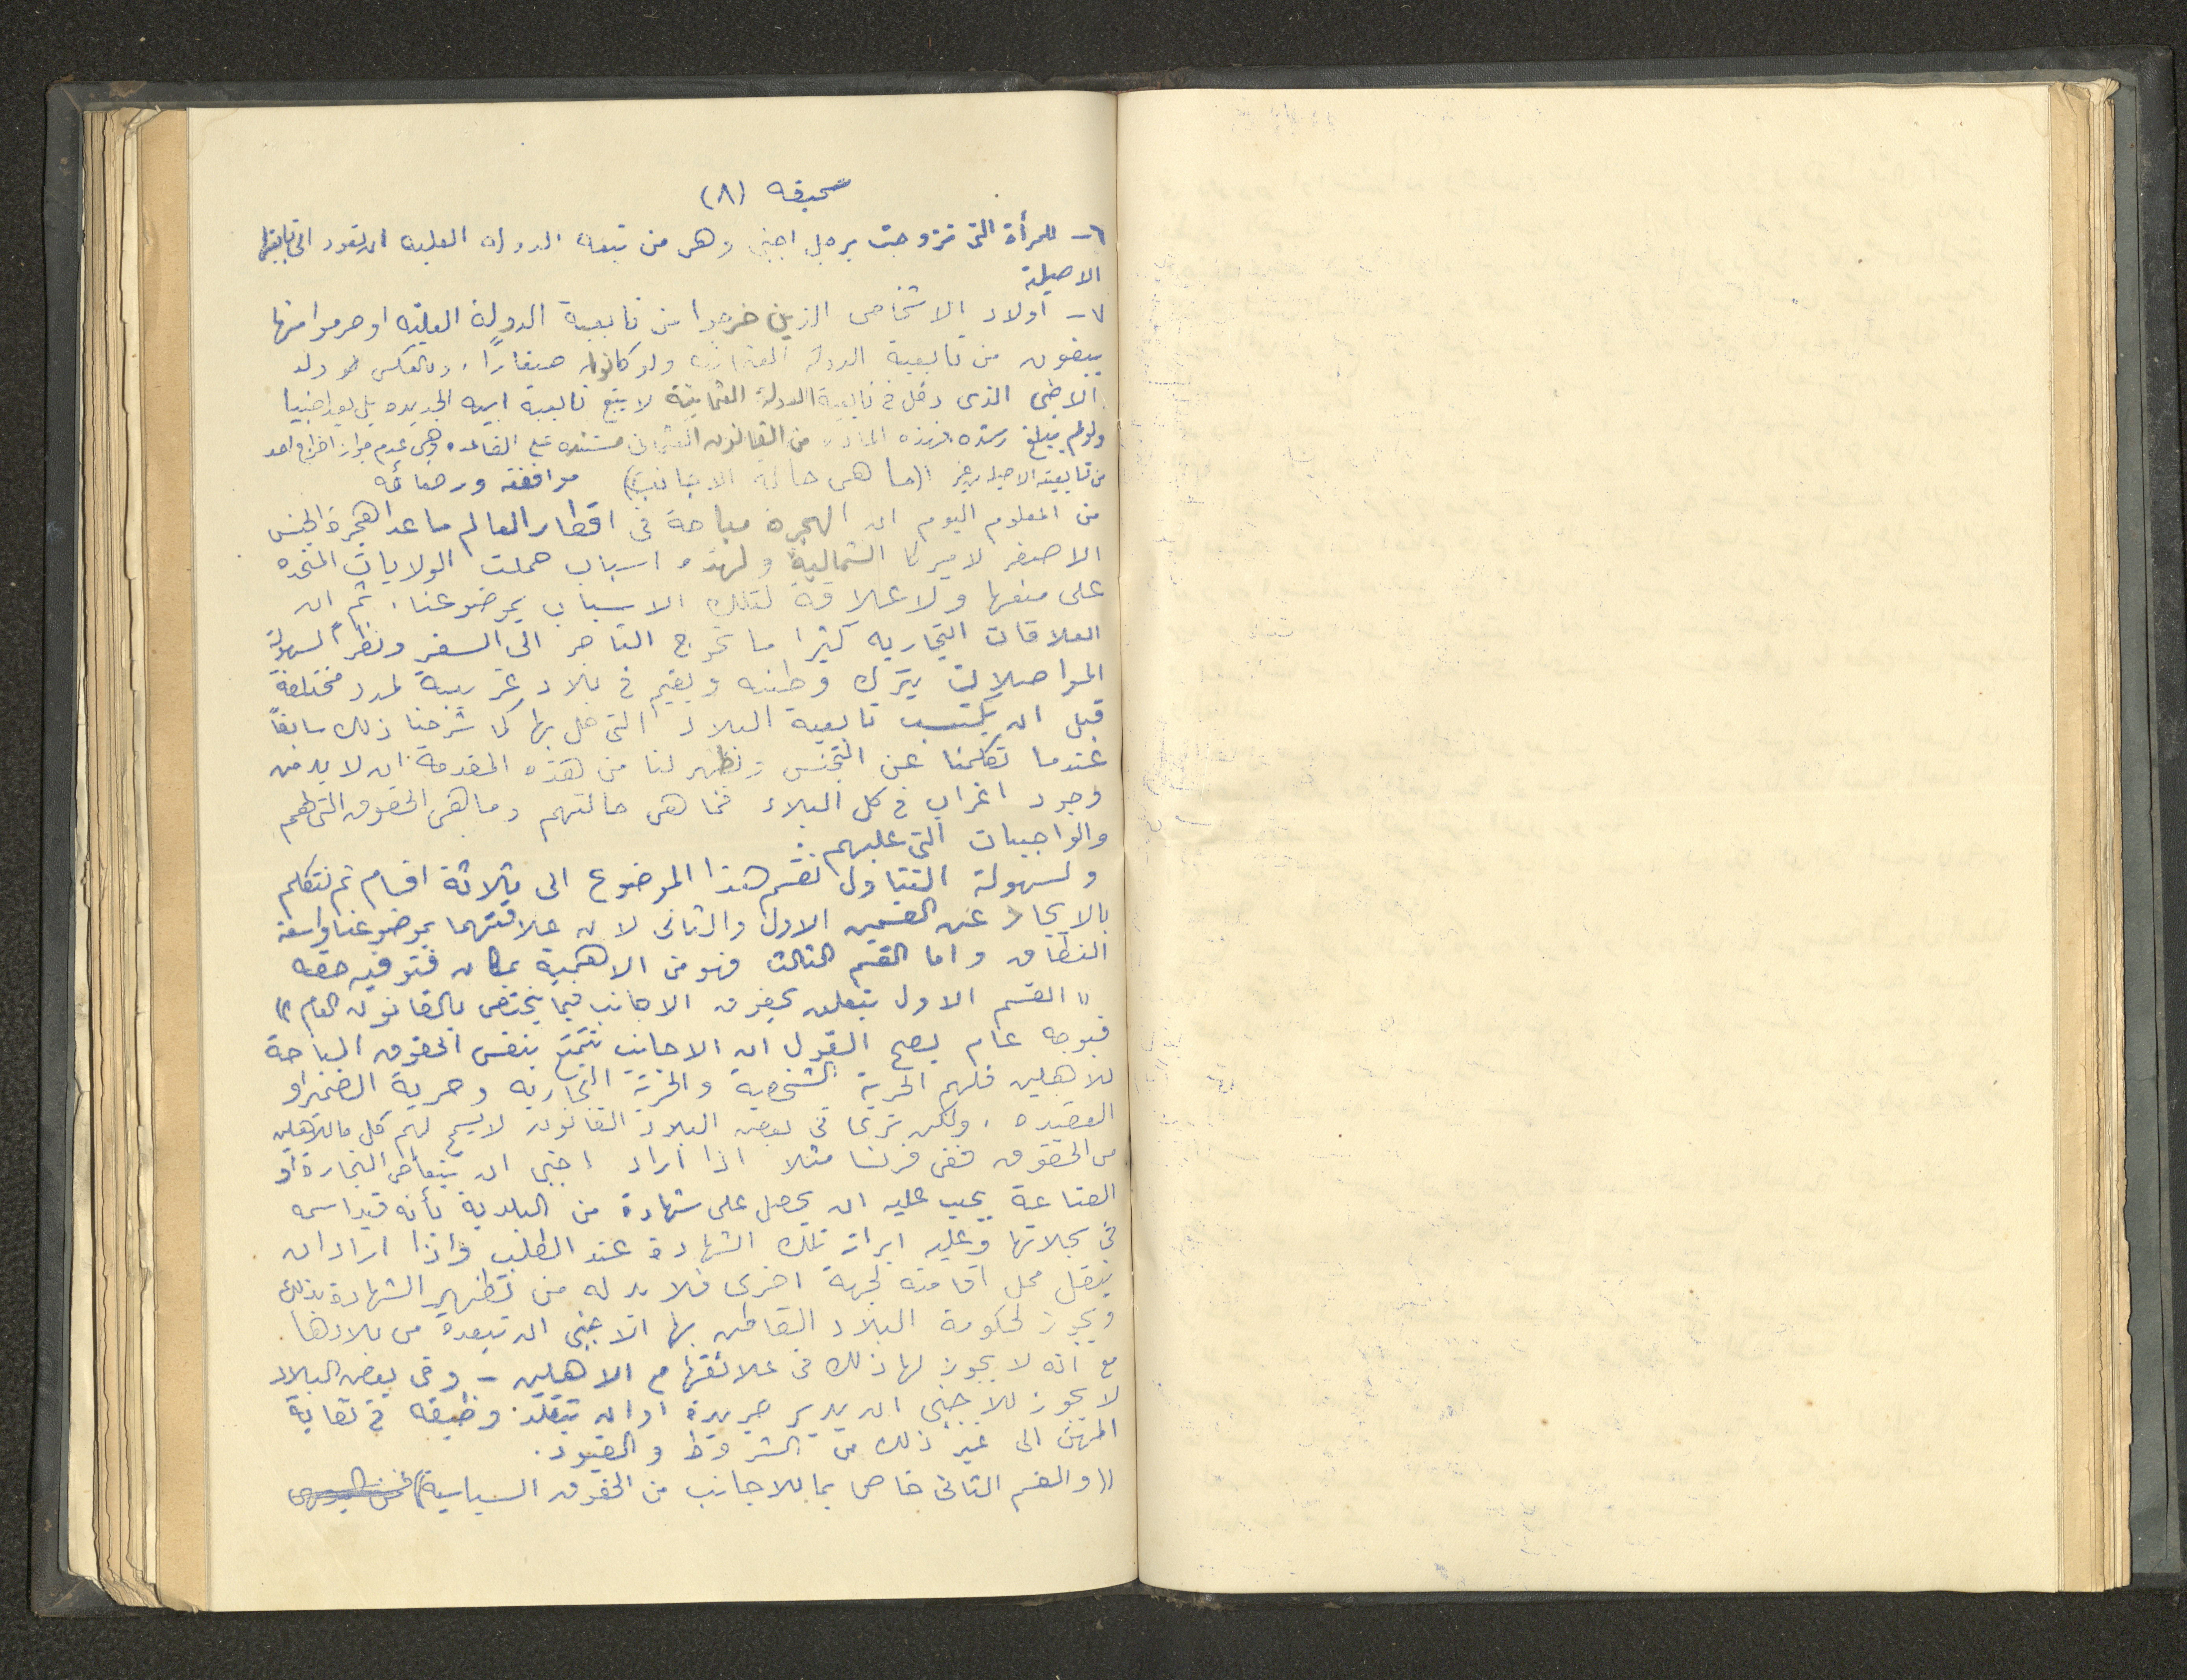 صحيفه (٨)
٦- للمرأة التى تزوجت برجل اجنبى وهى من تبعه الدوله العليه ان تعود الى تابعيتها
الاصلية
٧- اولاد الاشخاص الذين خرجوا من تابعية الدولة العليه او حرموا منها
يبقون من تابعية الدولة العثمانيه ولو كانوا صغاراً. وبالعكس ولد
الاجنبى الذى دخل فى تابعية الدولة العثمانية لا يتبع تابعية ابيه الجديده بل يعد اجنبيا
ولو لم يبلغ رشده. فهذه الماده من القانون العثمانى مستنده على القاعده وهى عدم جواز اخراج احد
من تابعيته الاصليه بغير ((ما هى حالة الاجانب)) موافقته ورضائه
من المعلوم اليوم ان الهجرة مباحة فى اقطار العالم ما عدا هجرة الجنس
الاصفر لاميركا الشمالية ولهذه اسباب حملت الولايات المتحده
على منعها ولا علاقة لتلك الاسباب بموضوعنا. ثم ان
العلاقات التجاريه كثيرا ما تحوج التاجر الى السفر ونظراً لسهولة
المواصلات يترك وطنه ويقيم فى بلاد غريبة لمدد مختلفة
قبل ان يكتسب تابعية البلاد التى حل بها كما شرحنا ذلك سابقاً
عندما تكلمنا عن التجنس ونظهر لنا من هذه المقدمة ان لا بد من
وجود اغراب فى كل البلاد فما هى حالتهم وما هى الحقوق التى لهم
والواجبات التى عليهم.
ولسهولة التناول نقسم هذا الموضوع الى ثلاثة اقسام ثم نتكلم
بالايجاز عن القسمين الاول والثانى لان علاقتهما بموضوعنا واسعة
النطاق واما القسم الثالث فهو من الاهمية بمكان فنوفيه حقه
((القسم الاول يتعلق بحقوق الاجانب فيما يختص بالقانون العام))
فبوجه عام يصح القول ان الاجانب تتمتع بنفس الحقوق المباحة
للاهلين فلهم الحرية الشخصية والحرية التجاريه وحرية الضمير او
العقيده. ولكن ترى فى بعض البلاد القانون لا يسمح لهم كل ما للاهلين
من الحقوق ففى فرنسا مثلا اذا اراد اجنبى ان يتعاطى التجارة او
الصناعة يجب عليه ان يحصل على شهادة من البلدية بأنه قيد اسمه
فى سجلاتها وعليه ابراز تلك الشهادة عند الطلب واذا اراد ان
ينقل محل اقامته لجهة اخرى فلا بد له من تظهير الشهادة بذلك
ويجوز لحكومة البلاد القاطن بها الاجنبى ان تبعده من بلادها.
مع انه لا يجوز لها ذلك فى علائقها مع الاهلين - وفى بعض البلاد
لا يجوز للاجنبى ان يدير جريدة او ان يتقلد وظيفه فى نقابة
المهن الى غير ذلك من الشروط والقيود.
((والقسم الثانى خاص بما للاجانب من الحقوق السياسية))